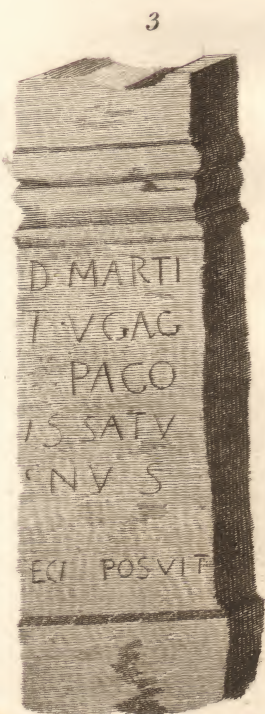 3
D MARTI
T·VGAG
PACO
IS SATV
NVS
ECI POSVIT